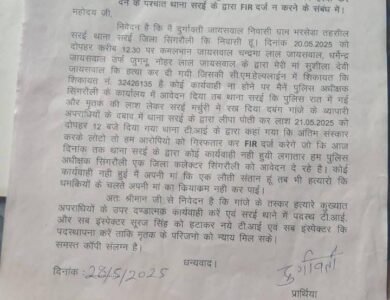 दन के पश्चात थाना सरई के द्वारा FIR दर्ज न करने के संबंध में।
महोदय जी,
निवेदन है कि मैं दुर्गावती जायसवाल निवासी ग्राम भरसेडा तहसील
सरई थाना सरई जिला सिंगरौली कि निवासी हूं। दिनांक 20.05.2025 को
दोपहर करीब 12.30 पर कमलभान जायसवाल चन्द्रमा लाल जायसवाल, धर्मेन्द
जायसवाल उर्फ जुगनू, नोहर लाल जायसवाल के द्वारा मेरी मां सुशीला देवी
जायसवाल कि हत्या कर दी गयी, जिसकी सी.एम.हेल्पलाईन में शिकायत कि
शिकायत नं. 32426135 है कोई कार्यवाही ना होने पर मैनें पुलिस अधीक्षक
सिंगरौली के कार्यालय में आवेदन दिया तब थाना सरई कि पुलिस रात में गई
और मृतक की लाश लेकर सरई मर्चुरी में रख दिया दबंग गांजे के व्यापारी
अपराधियों के दबाव में थाना सरई के द्वारा लीपा पोती कर लाश 21.05.2025 को
दोपहर 12 बजे दिया गया थाना टी.आई के द्वारा कहा गया कि अंतिम संस्कार
करके लोटो तो हम आरोपियों को गिरफतार कर FIR दर्ज करेगें जो कि आज
दिनांक तक थाना सरई के द्वारा कोई कार्यवाही नहीं हुयी लगातार हम पुलिस
अधीक्षक सिंगरौली एक जिला कलेक्टर सिंगरौली को आवेदन दे रहे है। कोई
कार्यवाही नही हुई मैं अपनी मां कि एक लौती संतान हूं तब भी हत्यारो कि
धमकीयों के चलते अपनी मां का कियाक्रम नही कर पाई।
अतः श्रीमान जी से निवेदन है कि गांजे के तास्कर हत्यारे कुख्यात
अपराधियों के उपर दण्डात्मक कार्यवाही करें एवं सरई थाने में पदस्थ टी.आई,
और सब इंस्पेक्टर सूरज सिंह को हटाकर नये टी.आई एवं सब इंस्पेक्टर कि
पदस्थापना करें ताकि मृतक के परिजनो को न्याय मिल सके।
समस्त कॉपी संलग्न है।
धन्यवाद।
दिनांक :28/5/2025
दुर्गावती
प्रार्थिया